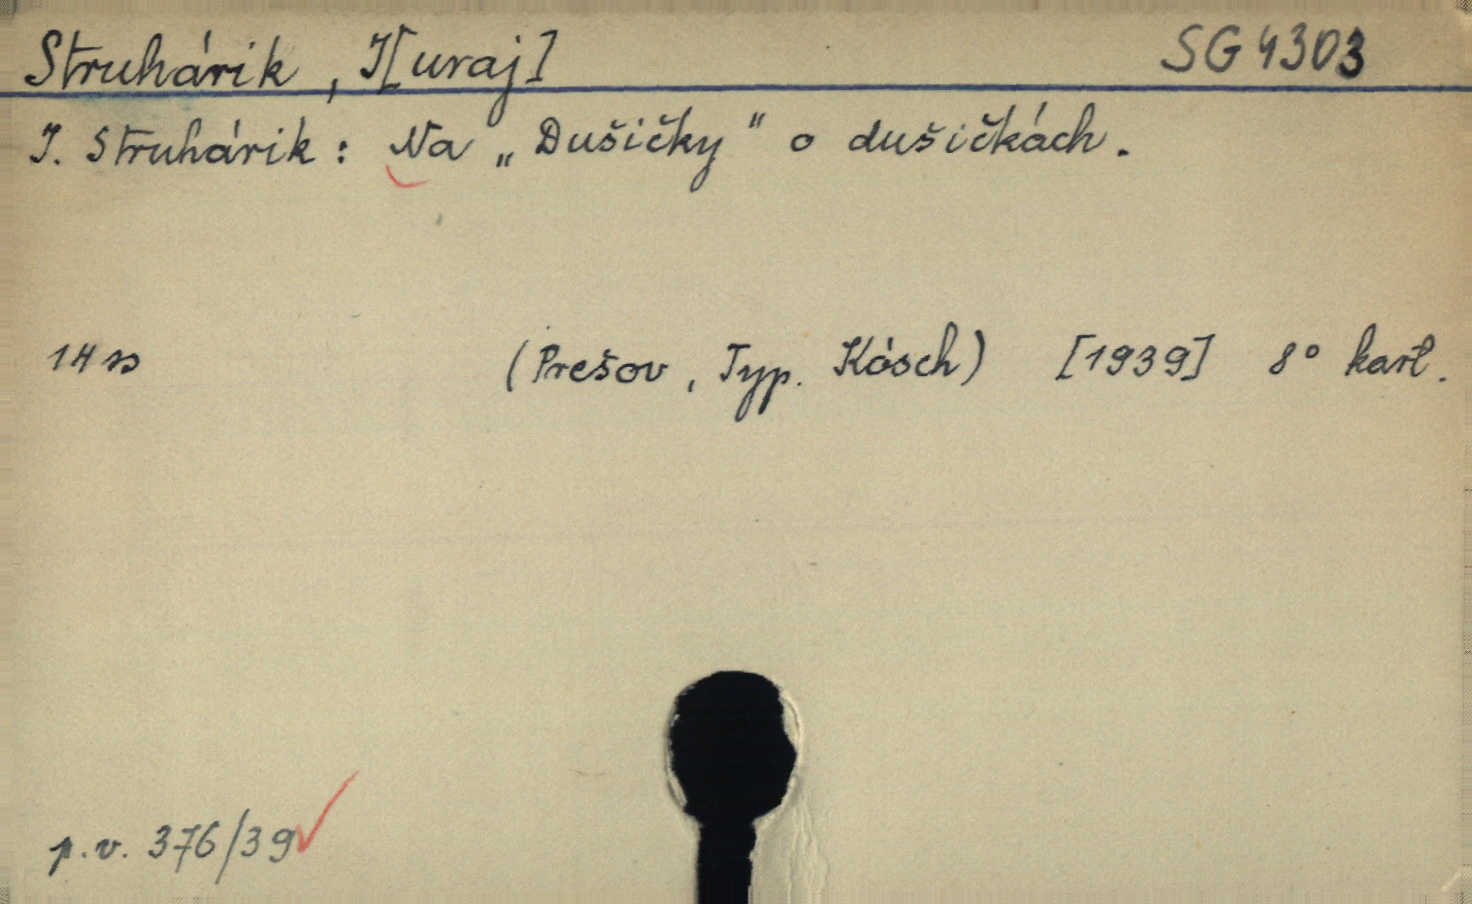 Struhárik, J[uraj] SG 4303
J. Struhárik: Na „Dušičky“ o dušičkách.
14 s (Prešov, Typ. Kósch) [1939] 8° kart.
p.v. 376/39